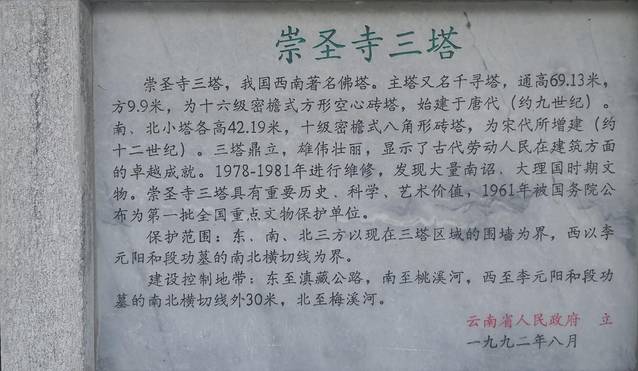 崇圣寺三塔
崇圣寺三塔，我国西南著名佛塔。主塔又名千寻塔，通高69.13米，
方9.9米，为十六级密檐式方形空心砖塔，始建于唐代（约九世纪）。
南、北小塔各高42.19米，十级密檐式八角形砖塔，为宋代所增建（约
十二世纪）。三塔鼎立，雄伟壮丽，显示了古代劳动人民在建筑方面
的卓越成就。1978-1981年进行维修，发现大量南诏、大理国时期文
物。崇圣寺三塔具有重要历史、科学、艺术价值，1961年被国务院公
布为第一批全国重点文物保护单位。
保护范围：东、南、北三方以现在三塔区域的围墙为界，西以李
元阳和段功墓的南北横切线为界。
建设控制地带：东至滇藏公路，南至桃溪河，西至李元阳和段功
墓的南北横切线外30米，北至梅溪河。
云南省人民政府 立
一九九二年八月